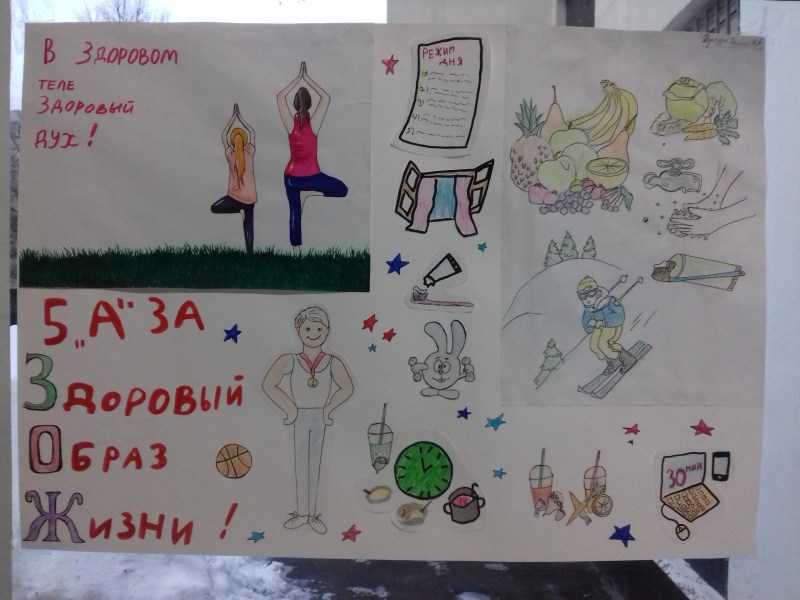 В ЗДОРОВОМ
ТЕЛЕ
ЗДОРОВЫЙ
ДУХ!
РЕЖИМ
ДНЯ
1)
2)
3)
4)
5)
5 „А" ЗА
ЗДОРОВЫЙ
ОБРАЗ
ЖИЗНИ!
30 мин